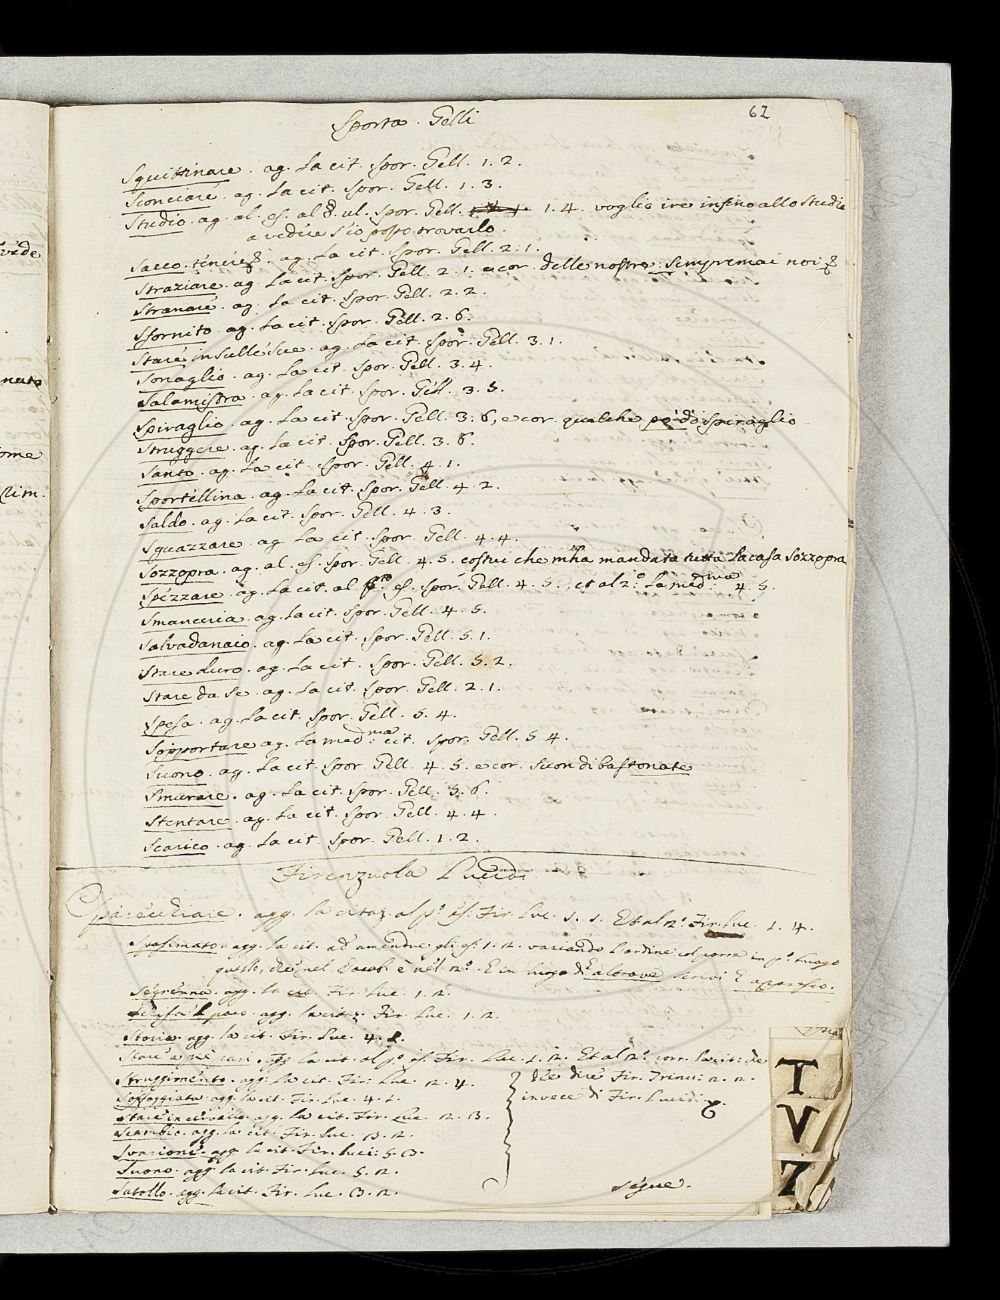 62
Sporta. Gelli
Squittinare. ag. la cit. Spor. Gell. 1. 2.
Sconciare. ag. la cit. Spor. Gell. 1. 3.
Studio. ag. al. es. al §. ul. Spor. Gell. 1. 4. voglio ire insino allo Studio
a vedere s'io posso trovarlo.
Sacco. tenere §. ag. la cit. Spor. Gell. 2. 1.
Straziare. ag. la cit. Spor. Gell. 2. 1. e cor. delle nostre. Sempremai noi §.
Stranare. ag. la cit. Spor. Gell. 2. 2.
Sfornito. ag. la cit. Spor. Gell. 2. 6.
Stare in sulle sue. ag. la cit. Spor. Gell. 3. 1.
Sonaglio. ag. la cit. Spor. Gell. 3. 4.
Salamistra. ag. la cit. Spor. Gell. 3. 5.
Spiraglio. ag. la cit. Spor. Gell. 3. 6, e cor. qualche pò di spiraglio
Struggere. ag. la cit. Spor. Gell. 3. 6.
Santo. ag. la cit. Spor. Gell. 4. 1.
Sportellina. ag. la cit. Spor. Gell. 4. 2.
Saldo. ag. la cit. Spor. Gell. 4. 3.
Squazzare. ag. la cit. Spor. Gell. 4. 4.
Sozzopra. ag. al. es. Spor. Gell. 4. 5. costui che m'ha mandata tutta la casa sozzopra
Spezzare. ag. la cit. al es. Spor. Gell. 4. 5. et al 2.º la med.ma 4. 5.
Smanceria. ag. la cit. Spor. Gell. 4. 5.
Salvadanaio. ag. la cit. Spor. Gell. 5. 1.
Stare duro. ag. la cit. Spor. Gell. 5. 2.
Stare da se. ag. la cit. Spor. Gell. 2. 1.
Spesa. ag. la cit. Spor. Gell. 5. 4.
Sopportare ag. la med.ma cit. Spor. Gell. 5 4.
Suono. ag. la cit. Spor Gell. 4. 5. e cor. Suon di bastonate
Smurare. ag. la cit. Spor. Gell. 5. 6.
Stentare. ag. la cit. Spor. Gell. 4. 4.
Scarico. ag. la cit. Spor. Gell. 1. 2.
Firenzuola Lucidi
Sparecchiare. agg. la citaz. al p.º es. Fir. Luc. 5. 5. Et al 2.º Fir. Luc. 1. 4.
Spasimato. agg. la cit. ad amendue gli es. 1. 2. variando l'ordine col porre in p.º luogo
quello, che nel Vocab. è nel 2.º E in luogo di altrove scrivi E appresso.
agg. la cit. Fir. Luc. 1. 2.
agg. la cit. Fir. Luc. 1. 2.
Storia. agg. la cit. Fir. Luc. 4.
Stare a piè agg. la cit. al p.º es. Fir. Luc. 1. 2. Et al 2.º corr. la cit. che
Struggimento. agg. la cit. Fir. Luc. 2. 4.
dee dire Fir. Trinu. 2. 2.
Soppoggiata. agg. la cit. Fir. Luc. 4.
invece di Fir. Lucidi.
Stare in cervello. agg. la cit. Fir. Luc. 2. 3.
Scambio. agg. la cit. Fir. Luc. 3. 2.
Svarione. agg. la cit. Fir. Luci. 5. 3.
Suono. agg. la cit. Fir. Luc. 5. 2.
Satollo. agg. la cit. Fir. Luc. 3. 2.
Segue.
T
V
Z